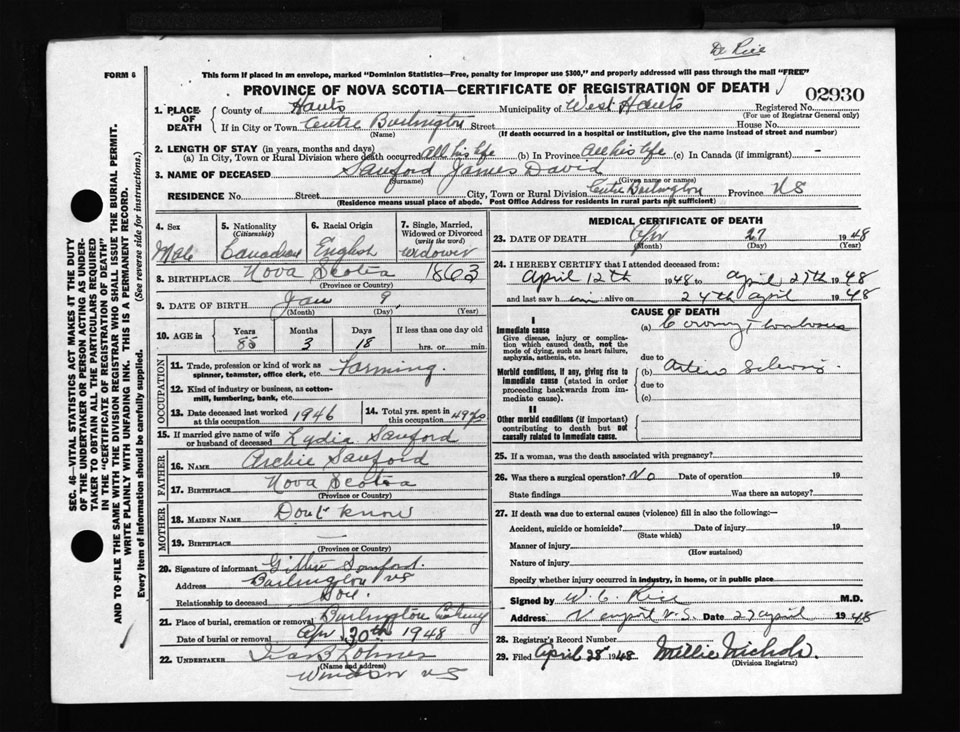 Dr Rice
FORM 6
This form if placed in an envelope, marked "Dominion Statistics—Free, penalty for improper use $300," and properly addressed will pass through the mail "FREE"
PROVINCE OF NOVA SCOTIA—CERTIFICATE OF REGISTRATION OF DEATH
02930
1. PLACE OF DEATH County of Hants Municipality of West Hants Registered No.
(For use of Registrar General only)
If in City or Town Centre Burlington Street House No.
(Name) (If death occurred in a hospital or institution, give the name instead of street and number)
2. LENGTH OF STAY (in years, months and days)
(a) In City, Town or Rural Division where death occurred All his life (b) In Province All his life (c) In Canada (if immigrant) —
3. NAME OF DECEASED Sanford James David
(Surname) (Given name or names)
RESIDENCE No. Street City, Town or Rural Division Centre Burlington Province NS
(Residence means usual place of abode. Post Office Address for residents in rural parts not sufficient)
4. Sex 5. Nationality (Citizenship) 6. Racial Origin 7. Single, Married, Widowed or Divorced (write the word)
Male Canadian English Widower
8. BIRTHPLACE Nova Scotia 1863
(Province or Country)
9. DATE OF BIRTH Jan 9,
(Month) (Day) (Year)
10. AGE in Years Months Days If less than one day old
85 3 18 hrs. or min.
OCCUPATION
11. Trade, profession or kind of work as spinner, teamster, office clerk, etc. Farming.
12. Kind of industry or business, as cotton-mill, lumbering, bank, etc.
13. Date deceased last worked at this occupation 1946 14. Total yrs. spent in this occupation 49 yrs
15. If married give name of wife or husband of deceased Lydia Sanford
FATHER
16. NAME Archie Sanford
17. BIRTHPLACE Nova Scotia
(Province or Country)
MOTHER
18. MAIDEN NAME Dont know
19. BIRTHPLACE —
(Province or Country)
20. Signature of informant Sanford.
Address Burlington NS
Relationship to deceased Son.
21. Place of burial, cremation or removal Burlington
Date of burial or removal Apr 30th 1948
22. UNDERTAKER
(Name and address)
Windsor NS
MEDICAL CERTIFICATE OF DEATH
23. DATE OF DEATH Apr 27 1948
(Month) (Day) (Year)
24. I HEREBY CERTIFY that I attended deceased from:
April 12th 1948 to April 27th 1948
and last saw him alive on 24th april 1948
CAUSE OF DEATH
I
Immediate cause (a) Coronary
Give disease, injury or complication which caused death, not the mode of dying, such as heart failure, asphyxia, asthenia, etc.
due to
Morbid conditions, if any, giving rise to immediate cause (stated in order proceeding backwards from immediate cause). (b)
due to
(c)
II
Other morbid conditions (if important) contributing to death but not causally related to immediate cause.
25. If a woman, was the death associated with pregnancy?
26. Was there a surgical operation? No Date of operation 19
State findings Was there an autopsy?
27. If death was due to external causes (violence) fill in also the following—
Accident, suicide or homicide? Date of injury 19
(State which)
Manner of injury
(How sustained)
Nature of injury
Specify whether injury occurred in industry, in home, or in public place
Signed by W. C. Rice M.D.
Address N.S. Date 27 april 1948
28. Registrar's Record Number
29. Filed April 28th 1948 Millie Nichols.
(Division Registrar)
SEC. 46—VITAL STATISTICS ACT MAKES IT THE DUTY
OF THE UNDERTAKER OR PERSON ACTING AS UNDER-
TAKER TO OBTAIN ALL THE PARTICULARS REQUIRED
IN THE "CERTIFICATE OF REGISTRATION OF DEATH"
AND TO FILE THE SAME WITH THE DIVISION REGISTRAR WHO SHALL ISSUE THE BURIAL PERMIT.
WRITE PLAINLY WITH UNFADING INK. THIS IS A PERMANENT RECORD.
Every item of information should be carefully supplied. (See reverse side for instructions.)